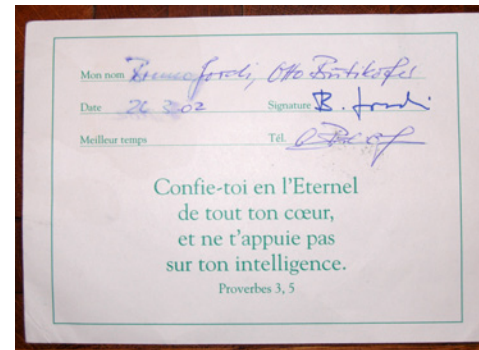 Mon nom Bruno Jordi, Otto Bütikofer
Date 26 3 02 Signature B. Jordi
Meilleur temps Tél.
Confie-toi en l'Eternel
de tout ton cœur,
et ne t'appuie pas
sur ton intelligence.
Proverbes 3, 5